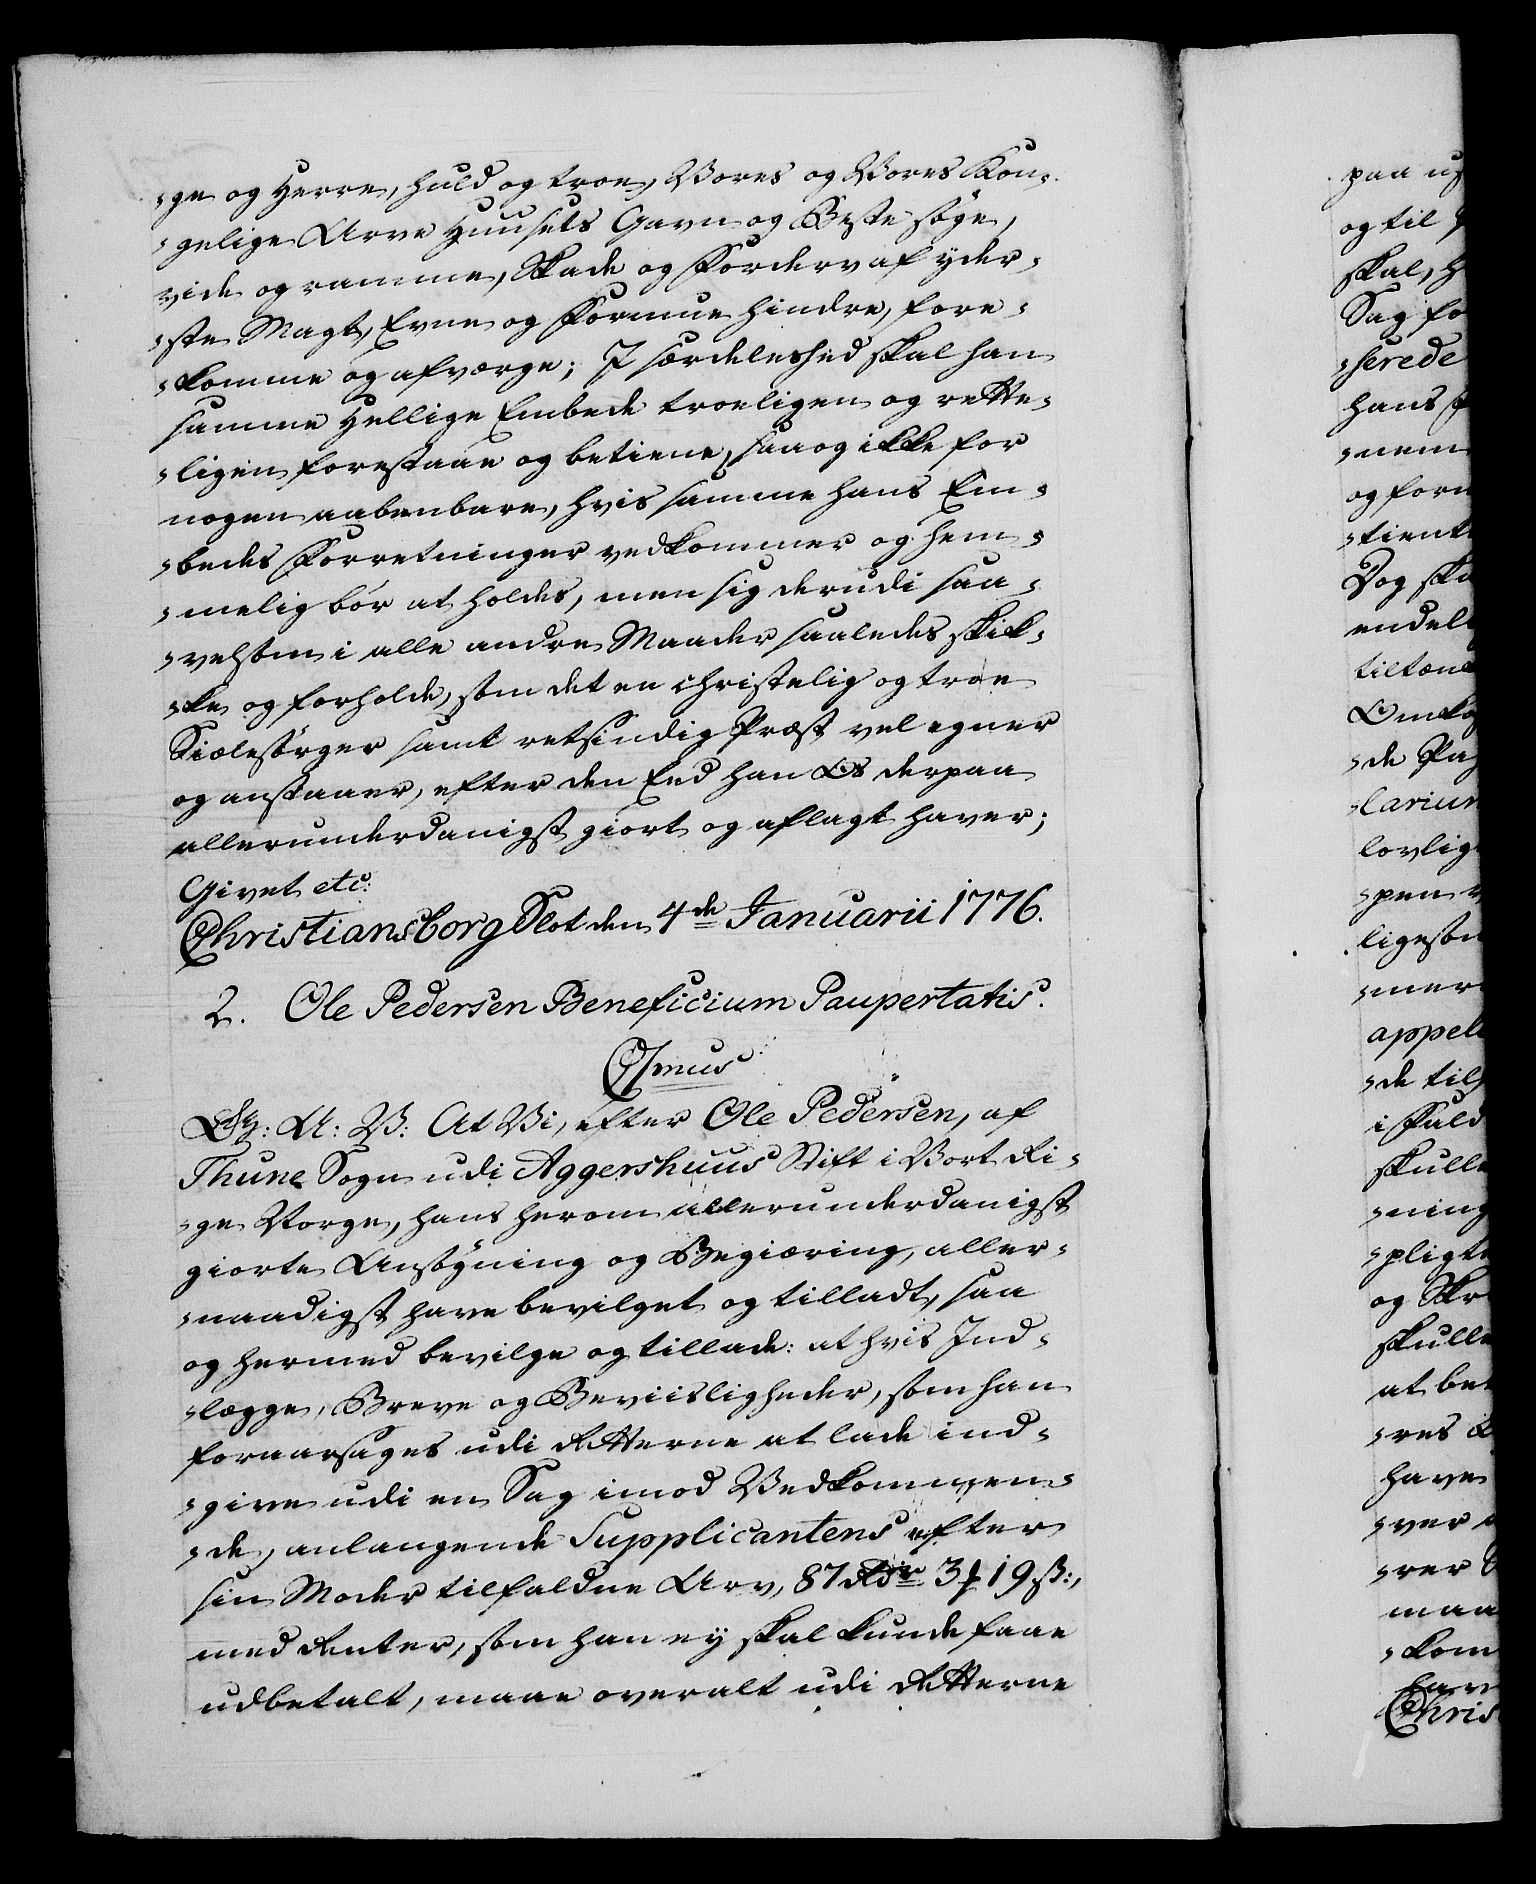 -ge og Herre, huld og troe, Vores og Vores Kon-
-gelige Arve Huusets Gavn og Beste søge,
vide og ramme, Skade og Forderv af yder-
-ste Magt, Evne og Formue hindre, fore-
-komme og afværge; I særdeleshed skal han
samme Hellige Embede troeligen og rette-
-ligen forestaae og betiene, saa og ikke for
nogen aabenbare, hvis samme hans Em-
-bedes Forretninger vedkommer og hem-
-melig bør at holdes, men sig derudi saa-
-velsom i alle andre Maader saaledes skik-
-ke og forholde, som det en christelig og troe
Siælesørger samt retsindig Præst vel egner
og anstaaer, efter den Eed han Os derpaa
allerunderdanigst giort og aflagt haver;
Givet etc:
Christiansborg Slot den 4de Januarii 1776.
2. Ole Pedersen Beneficium Paupertatis.
C7mus
G: A: V: At Vi, efter Ole Pedersen, af
Thune Sogn udi Aggershuus Stift i Vort Ri-
-ge Norge, hans herom allerunderdanigst
giorte Ansøgning og Begiæring, aller-
-naadigst have bevilget og tilladt, saa
og hermed bevilge og tillade: at hvis Ind-
-lægge, Breve og Beviisligheder, som han
foraarsages udi Retterne at lade ind-
-give udi en Sag imod Vedkommen-
-de, anlangende Supplicantens efter
sin Moder tilfaldne Arv, 87 Rdr 3 ʄ 19 ß:,
med Renter, som han ey skal kunde faae
udbetalt, maae overalt udi Retterne
paa
og til
skal, h
Sag fo
-serede
hans
-nem
og for
-tient
Dog ska
endel
tiltæn
Omko
-de Pa
-lariu
lovlig
-pen
ligeson
-mer
appel
-de til
i Fuld
skulle
-ning
-pligt
og Skr
skulle
at be
-res
have
-ver
-rer
maa
-kom
Chris